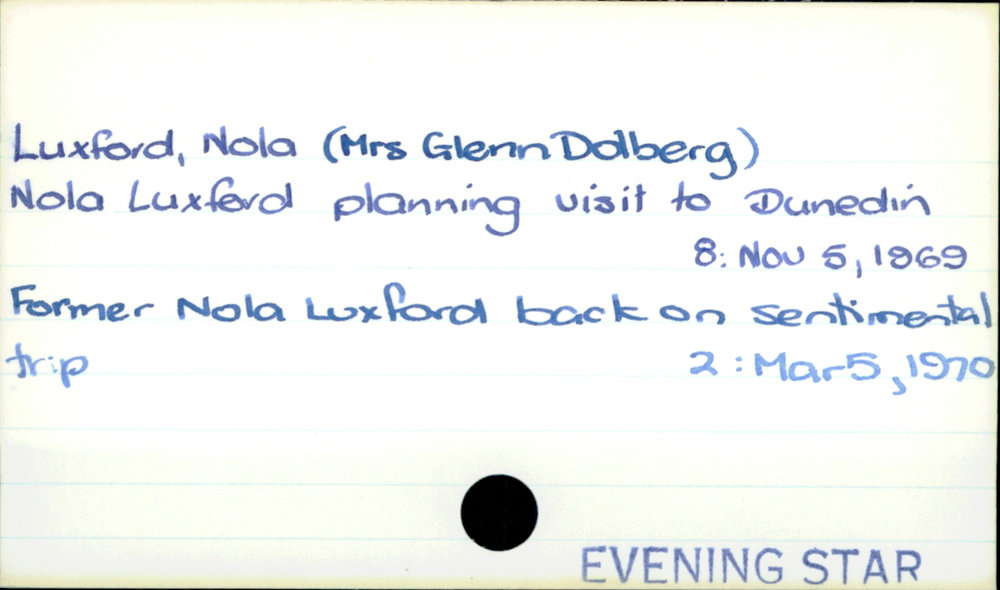 Luxford, Nola (Mrs Glenn Dolberg)
Nola Luxford planning visit to Dunedin
8: Nov 5, 1969
Former Nola Luxford back on sentimental
trip 2: Mar 5, 1970
EVENING STAR